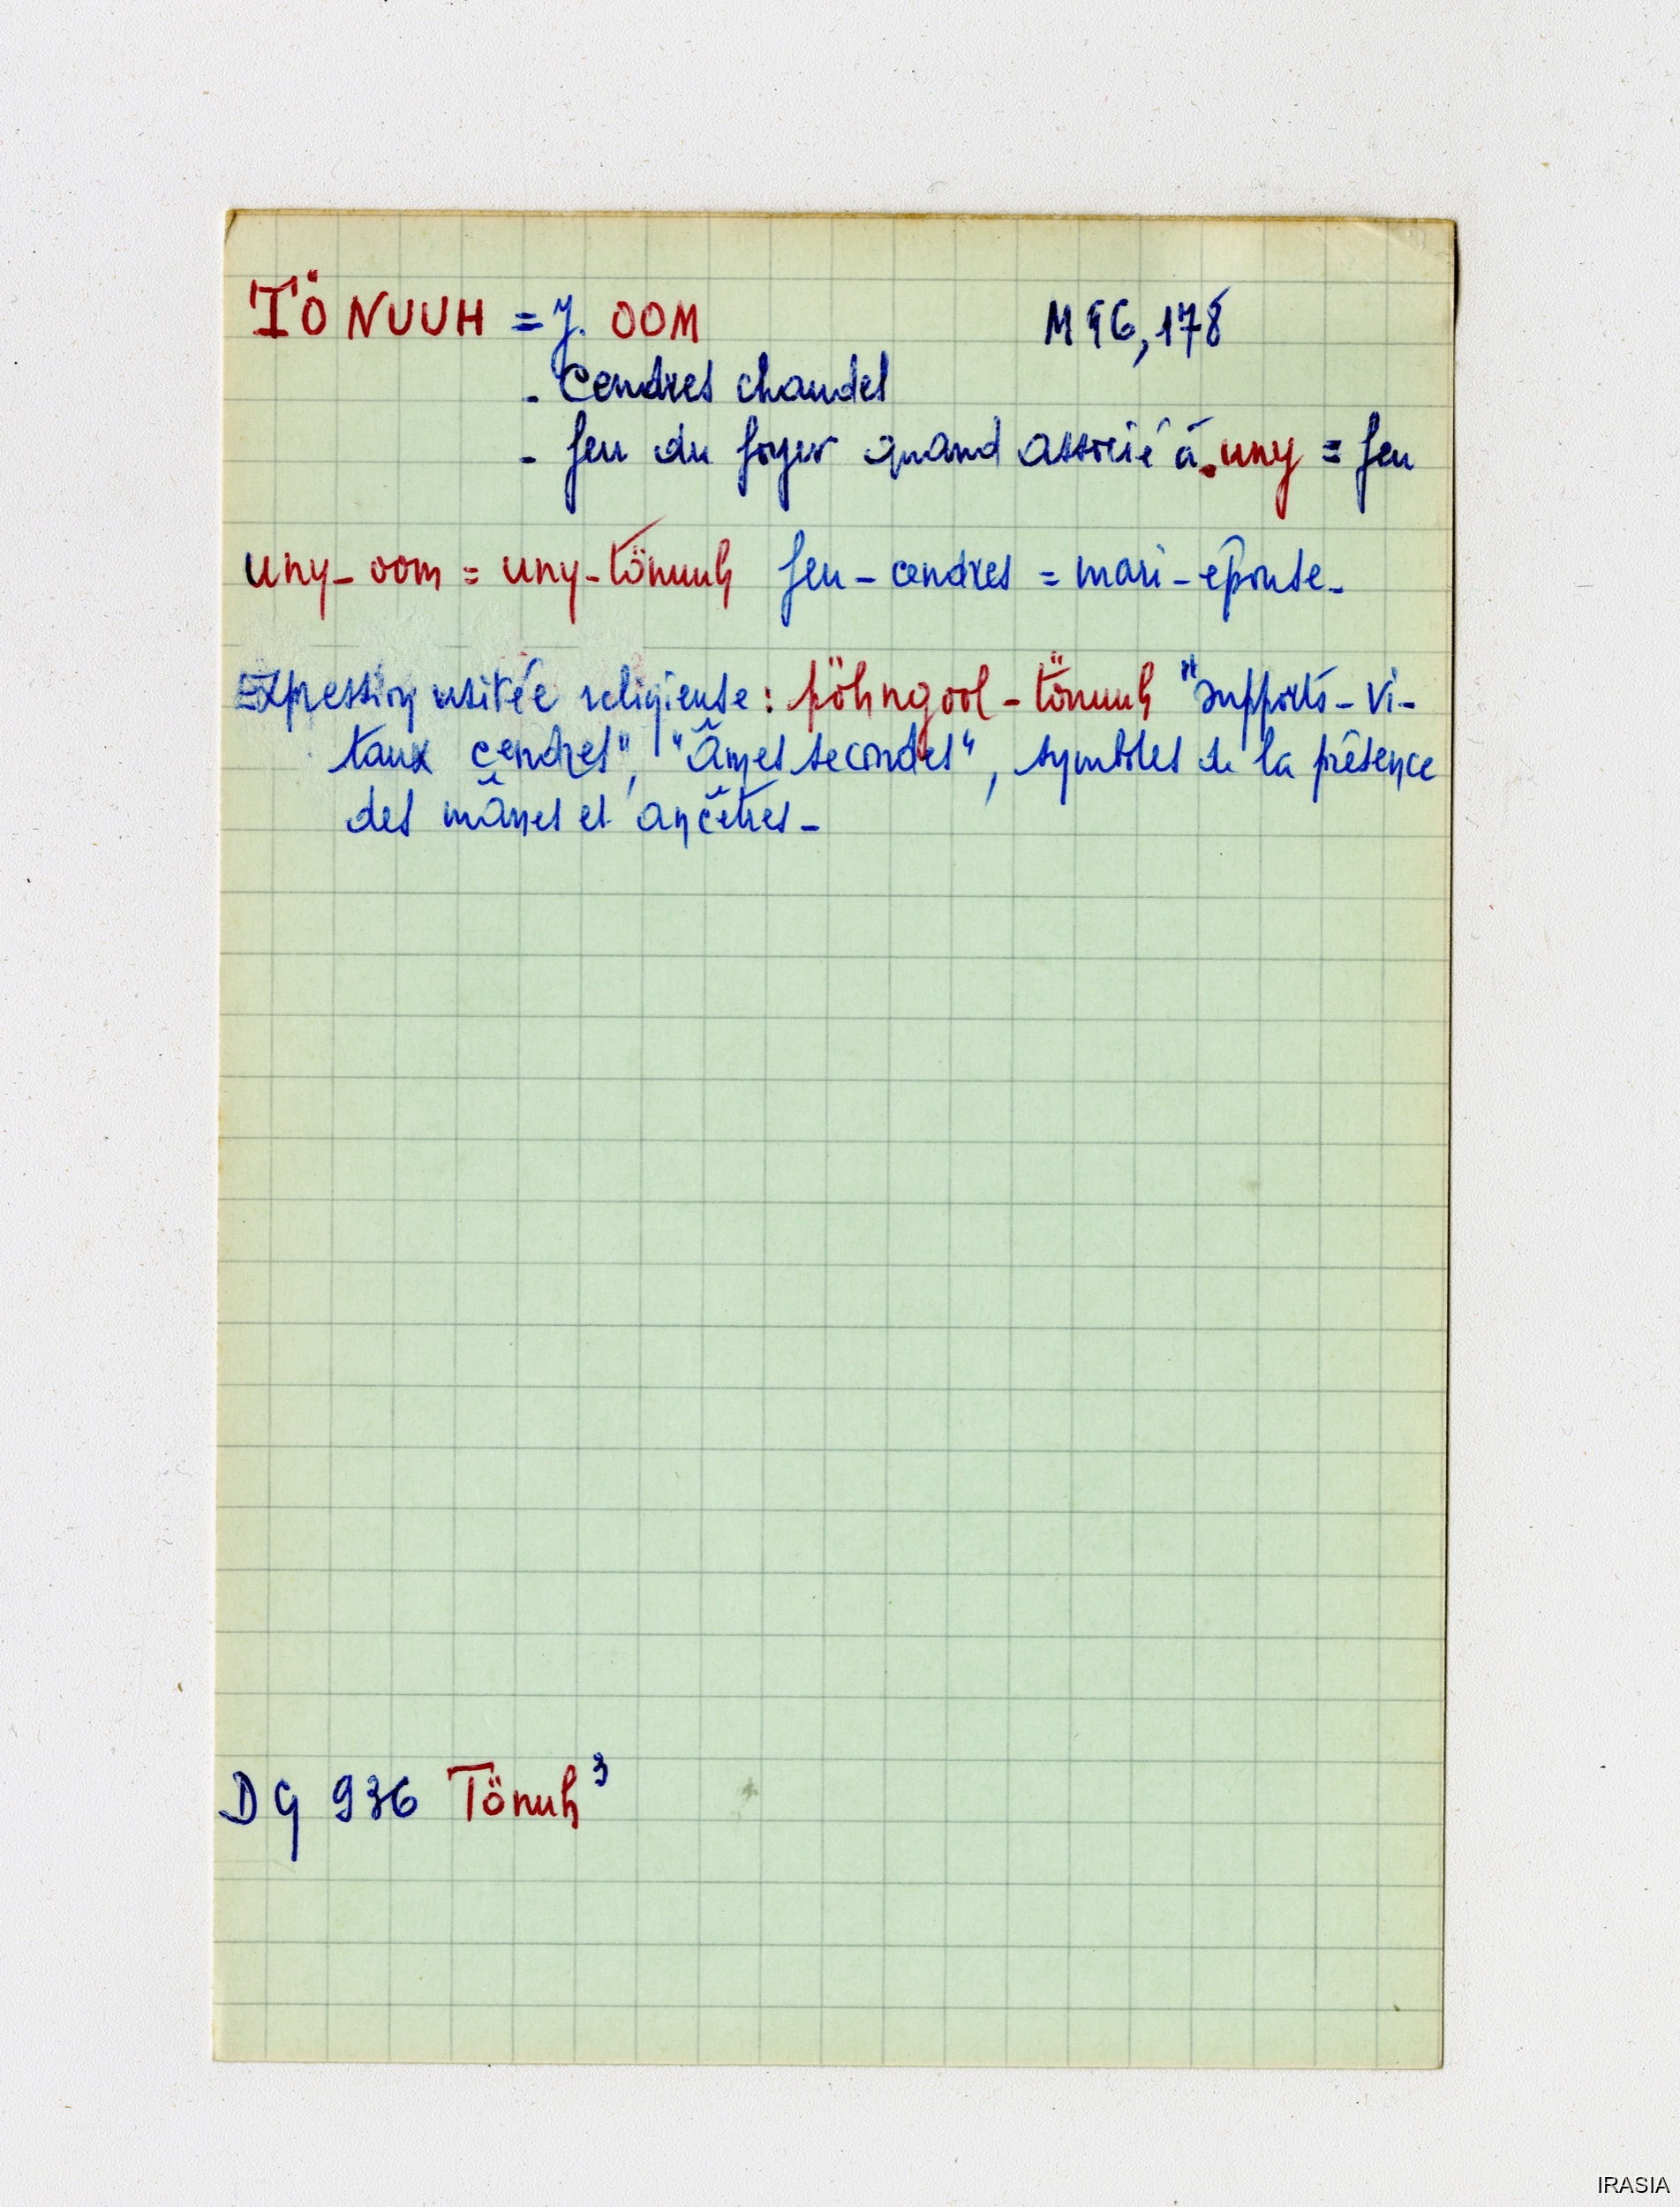 TÖNUUH = J. OOM M 96, 178
- Cendres chaudes
- feu du foyer quand associé à uny = feu
uny-oom = uny-tönuuh feu-cendres = mari-épouse-
Expression usitée religieuse : pöhngool-tönuuh "supports-vi-
taux cendres", "âmes secondes", symboles de la présence
des mânes et ancêtres-
DG 936 Tönuh³
IRASIA